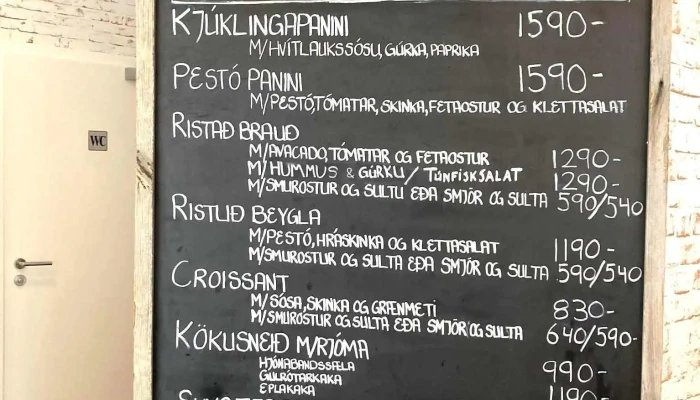 KJÚKLINGAPANINI 1590-
M/HVÍTLAUKSSÓSU, GÚRKA, PAPRIKA
PESTÓ PANINI 1590-
M/PESTÓ, TÓMATAR, SKINKA, FETAOSTUR OG KLETTASALAT
RISTAÐ BRAUÐ
WC
M/AVACADO, TÓMATAR OG FETAOSTUR 1290-
M/HUMMUS & GÚRKU/TÚNFISKSALAT 1290-
M/SMUROSTUR OG SULTU EÐA SMJÖR OG SULTA 590/540
RISTUÐ BEYGLA
M/PESTÓ, HRÁSKINKA OG KLETTASALAT 1190-
M/SMUROSTUR OG SULTA EÐA SMJÖR OG SULTA 590/540
CROISSANT
M/SÓSA, SKINKA OG GRÆNMETI 830-
M/SMUROSTUR OG SULTA EÐA SMJÖR OG SULTA 640/590-
KÖKUSNEIÐ M/RJÓMA
HJÓNABANDSSÆLA 990-
GULRÓTARKAKA
EPLAKAKA 1190-